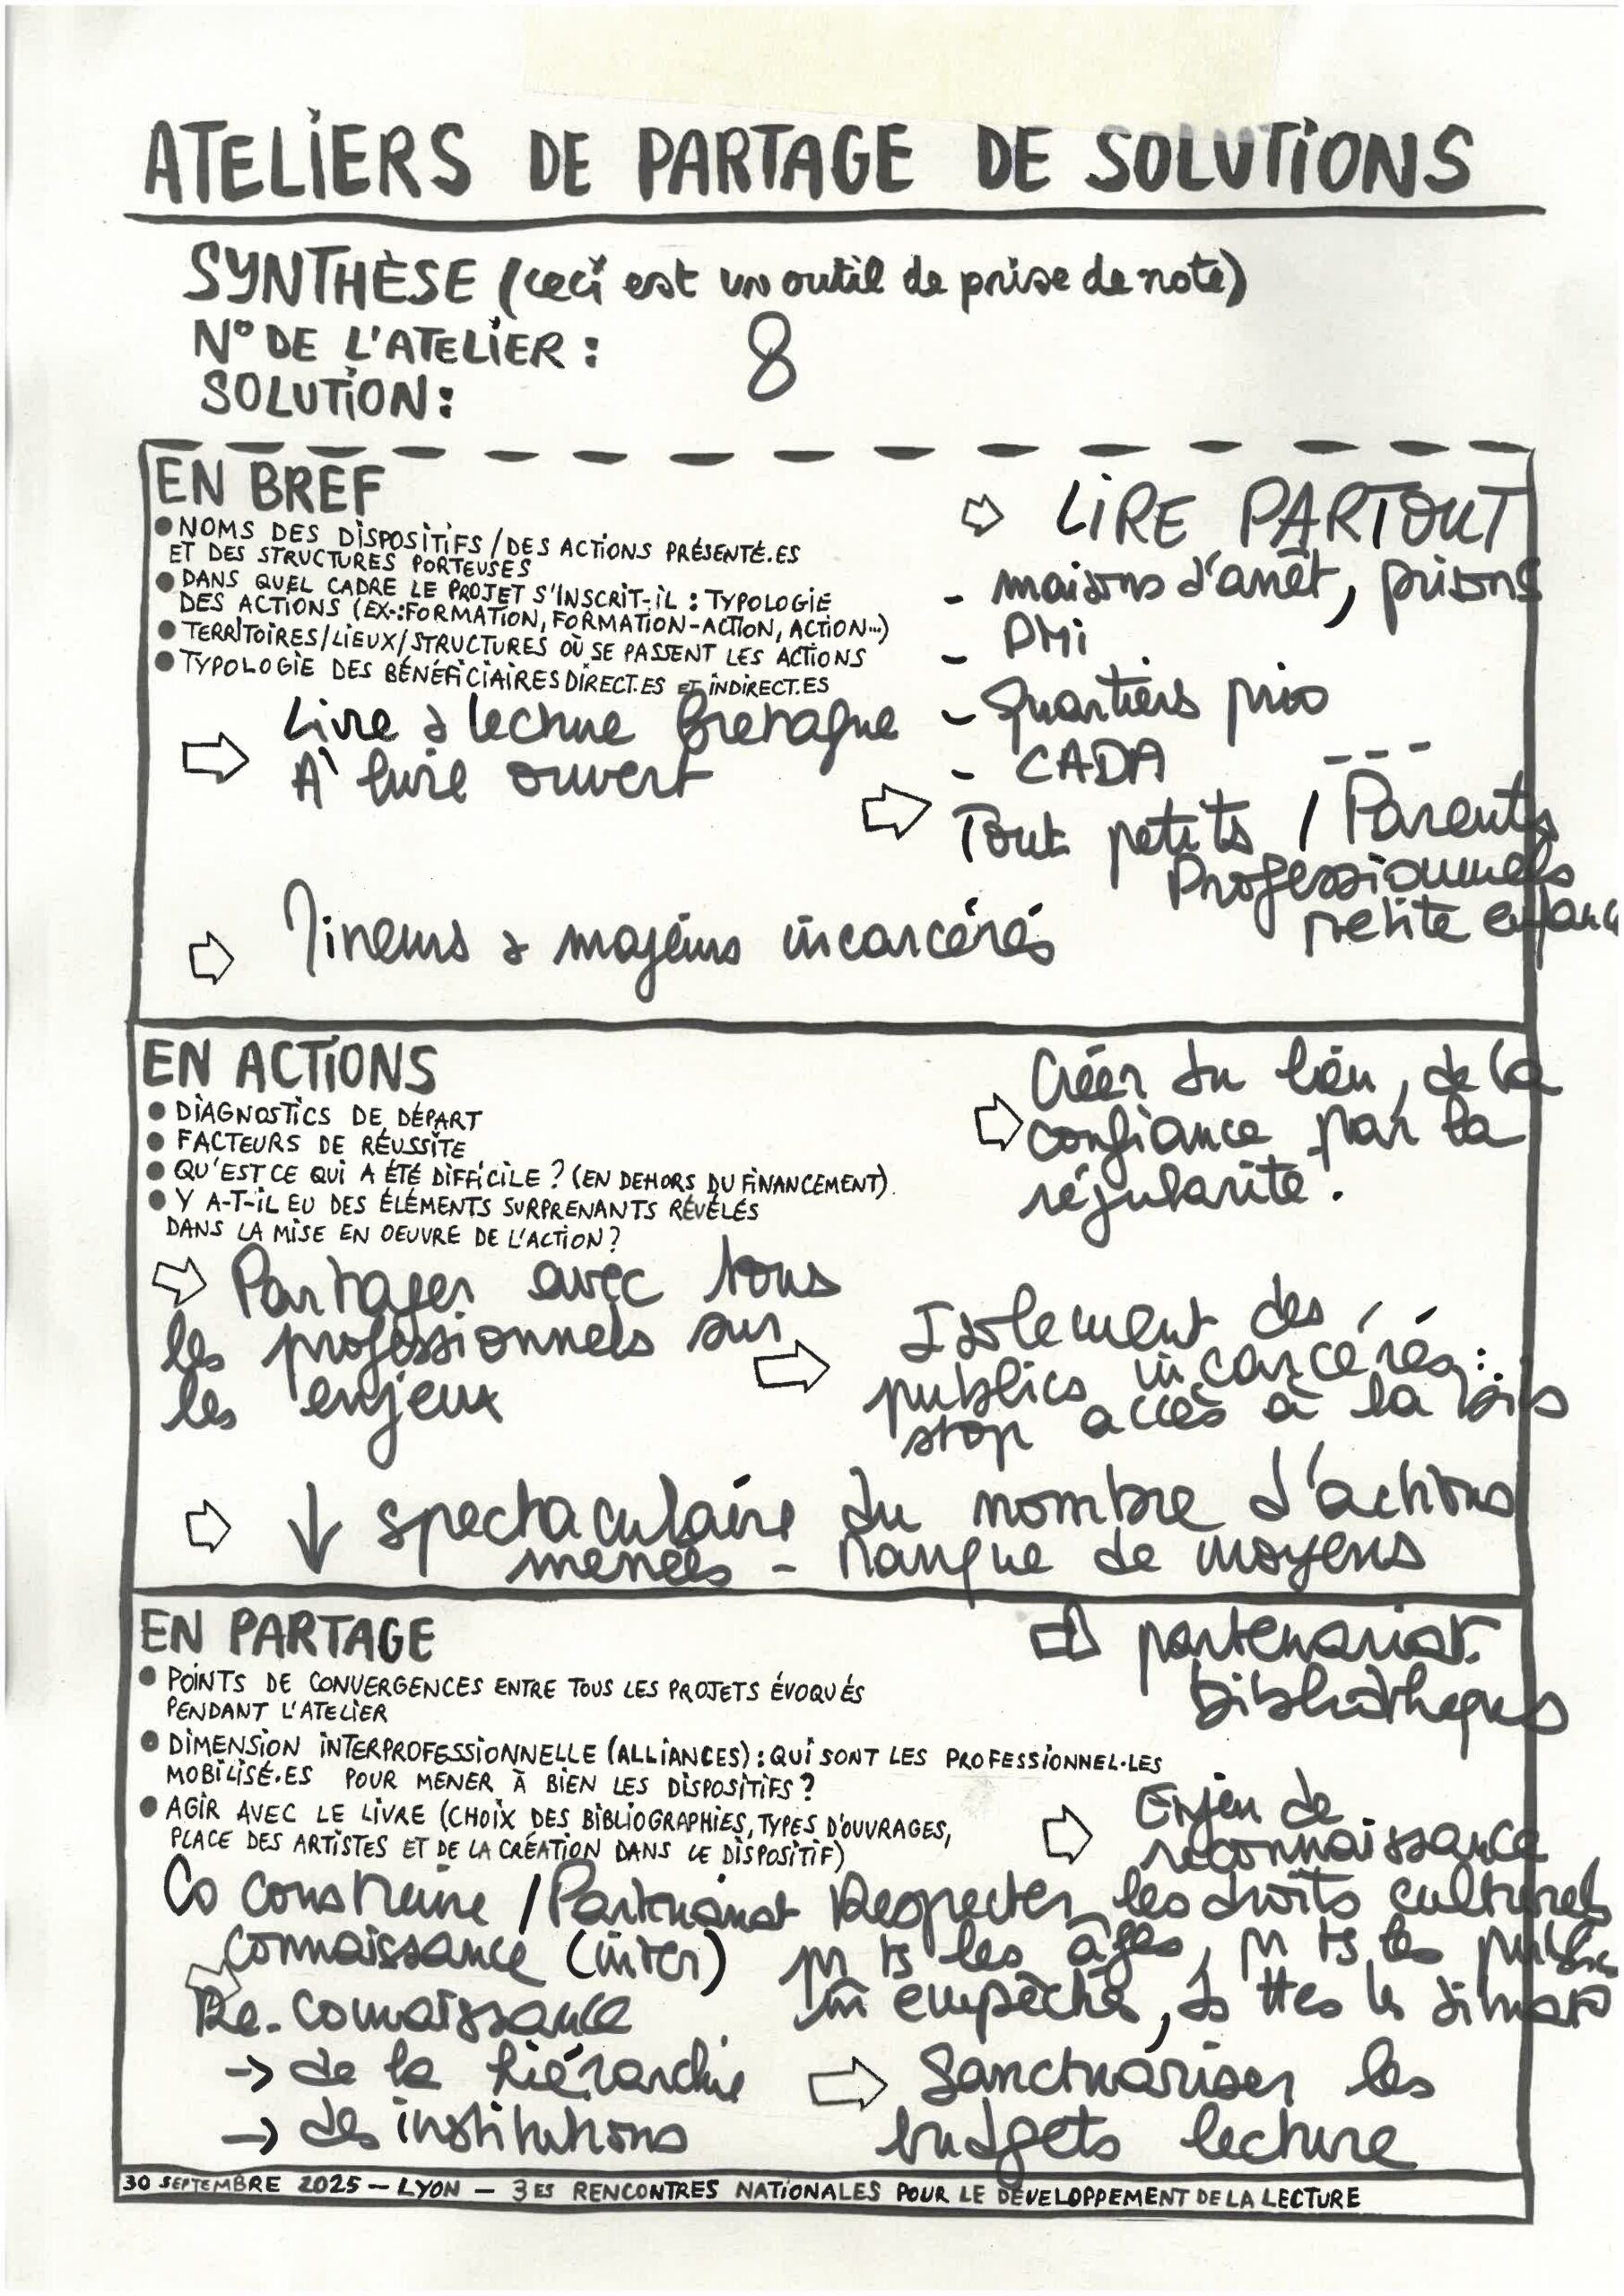 ATELIERS DE PARTAGE DE SOLUTIONS
SYNTHÈSE (ceci est un outil de prise de note)
N° DE L'ATELIER : 8
SOLUTION :
EN BREF
● NOMS DES DISPOSITIFS / DES ACTIONS PRÉSENTÉ.ES
ET DES STRUCTURES PORTEUSES
● DANS QUEL CADRE LE PROJET S'INSCRIT-IL : TYPOLOGIE
DES ACTIONS (EX.: FORMATION, FORMATION-ACTION, ACTION...)
● TERRITOIRES/LIEUX/STRUCTURES OÙ SE PASSENT LES ACTIONS
● TYPOLOGIE DES BÉNÉFICIAIRES DIRECT.ES ET INDIRECT.ES
⇨ Livre & lecture Bretagne
A livre ouvert
⇨ LIRE PARTOUT
- maisons d'arrêt, prisons
- PMi
- Quartiers prio
- CADA ---
⇨ Tout petits / Parents
Professionnels
petite enfanc
⇨ Mineurs & majeurs incarcérés
EN ACTIONS
● DIAGNOSTICS DE DÉPART
● FACTEURS DE RÉUSSITE
● QU'EST CE QUI A ÉTÉ DIFFICILE ? (EN DEHORS DU FINANCEMENT).
● Y A-T-IL EU DES ÉLÉMENTS SURPRENANTS RÉVÉLÉS
DANS LA MISE EN OEUVRE DE L'ACTION ?
⇨ Créer du lien, de la
confiance par la
régularité.
⇨ Partager avec tous
les professionnels sur
les enjeux
⇨ Isolement des
publics incarcérés :
stop accès à la
⇨ ↓ spectaculaire du nombre d'actions
menées - Manque de moyens
EN PARTAGE
● POINTS DE CONVERGENCES ENTRE TOUS LES PROJETS ÉVOQUÉS
PENDANT L'ATELIER
● DIMENSION INTERPROFESSIONNELLE (ALLIANCES) : QUI SONT LES PROFESSIONNEL.LES
MOBILISÉ.ES POUR MENER À BIEN LES DISPOSITIFS ?
● AGIR AVEC LE LIVRE (CHOIX DES BIBLIOGRAPHIES, TYPES D'OUVRAGES,
PLACE DES ARTISTES ET DE LA CRÉATION DANS LE DISPOSITIF)
⇨ partenariat
bibliothèques
⇨ Enjeu de
reconnaissance
Co construire / Partenariat
connaissance (inter)
⇨ Re-connaissance
→ de la hiérarchie
→ des institutions
Respecter les droits culturels
pr ts les âges, pr ts les public
empêché, ds ttes les
⇨ Sanctuariser les
budgets lecture
30 SEPTEMBRE 2025 - LYON - 3ES RENCONTRES NATIONALES POUR LE DÉVELOPPEMENT DE LA LECTURE